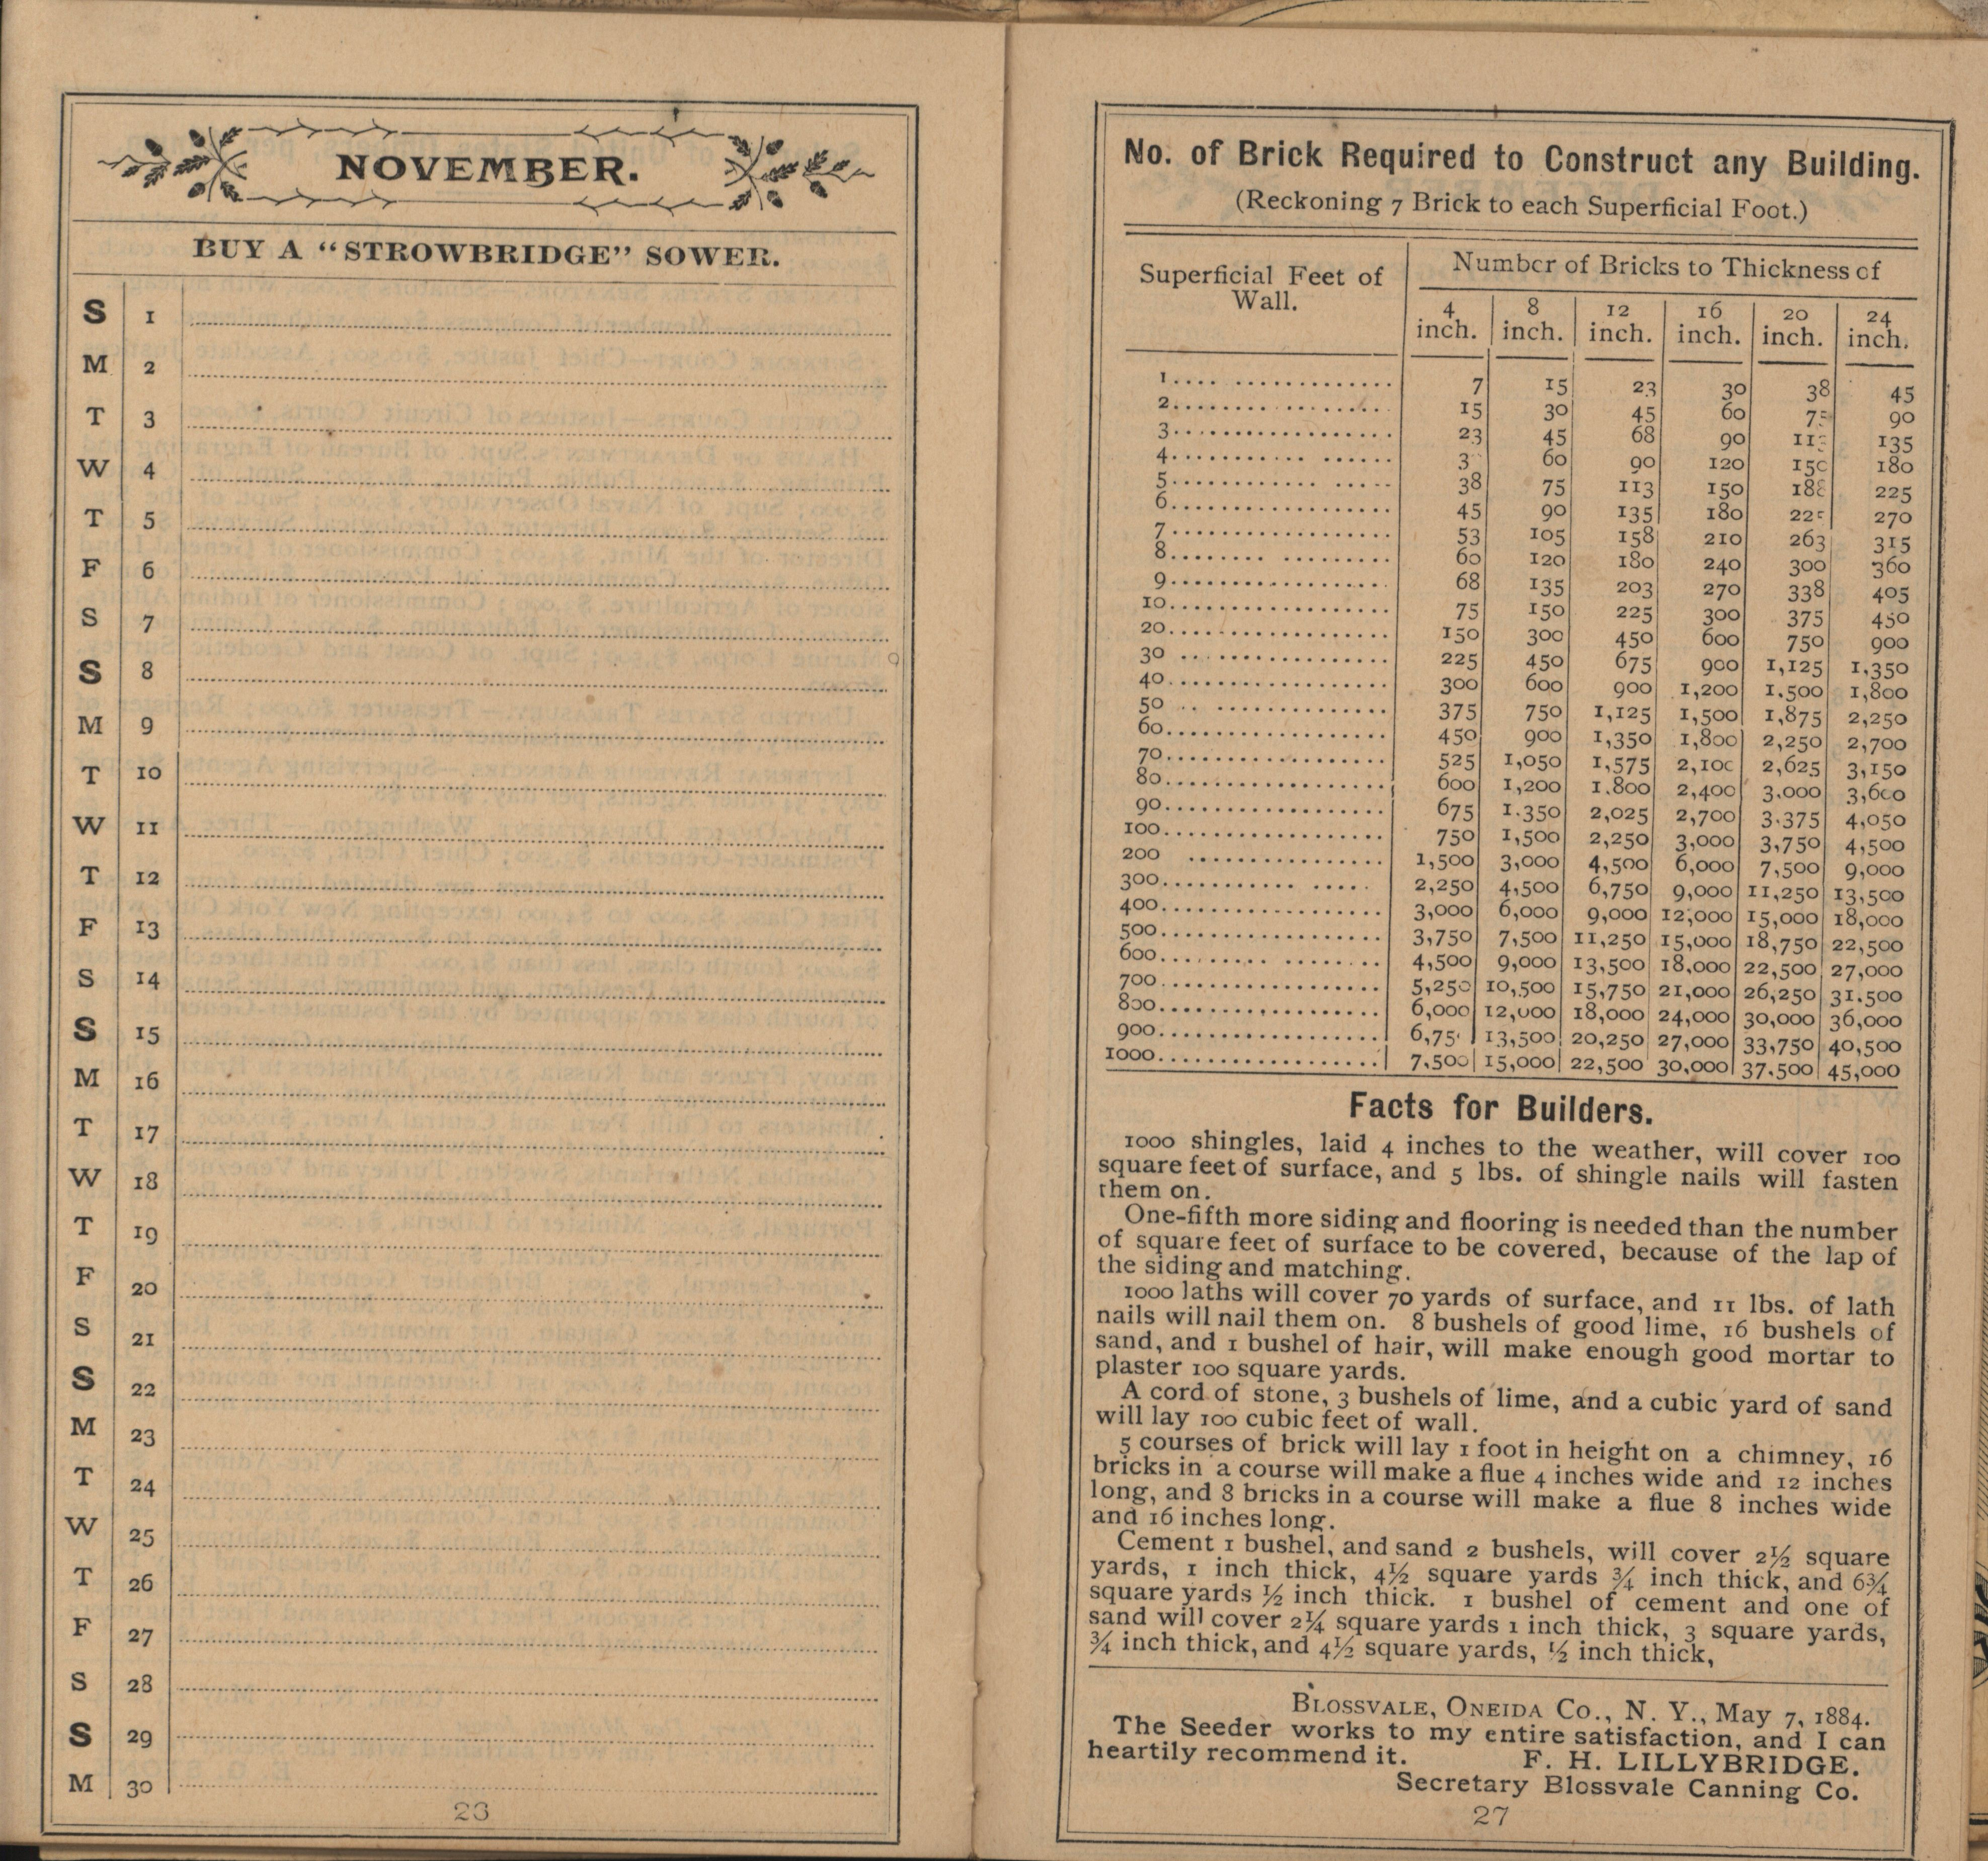 NOVEMBER.
BUY A "STROWBRIDGE" SOWER.
S 1
M 2
T 3
W 4
T 5
F 6
S 7
S 8
M 9
T 10
W 11
T 12
F 13
S 14
S 15
M 16
T 17
W 18
T 19
F 20
S 21
S 22
M 23
T 24
W 25
T 26
F 27
S 28
S 29
M 30
No. of Brick Required to Construct any Building.
(Reckoning 7 Brick to each Superficial Foot.)
Superficial Feet of Wall.
Number of Bricks to Thickness of
4 inch. 8 inch. 12 inch. 16 inch. 20 inch. 24 inch.
1 7 15 23 30 38 45
2 15 30 45 60 75 90
3 23 45 68 90 113 135
4 3 60 90 120 150 180
5 38 75 113 150 188 225
6 45 90 135 180 225 270
7 53 105 158 210 263 315
8 60 120 180 240 300 360
9 68 135 203 270 338 405
10 75 150 225 300 375 450
20 150 300 450 600 750 900
30 225 450 675 900 1,125 1,350
40 300 600 900 1,200 1.500 1,800
50 375 750 1,125 1,500 1,875 2,250
60 450 900 1,350 1,800 2,250 2,700
70 525 1,050 1,575 2,100 2,625 3,150
80 600 1,200 1.800 2,400 3.000 3,600
90 675 1.350 2,025 2,700 3.375 4,050
100 750 1,500 2,250 3,000 3,750 4,500
200 1,500 3,000 4,500 6,000 7,500 9,000
300 2,250 4,500 6,750 9,000 11,250 13,500
400 3,000 6,000 9,000 12,000 15,000 18,000
500 3,750 7,500 11,250 15,000 18,750 22,500
600 4,500 9,000 13,500 18,000 22,500 27,000
700 5,250 10,500 15,750 21,000 26,250 31.500
800 6,000 12,000 18,000 24,000 30,000 36,000
900 6,75 13,500 20,250 27,000 33,750 40,500
1000 7,500 15,000 22,500 30,000 37.500 45,000
Facts for Builders.
1000 shingles, laid 4 inches to the weather, will cover 100
square feet of surface, and 5 lbs. of shingle nails will fasten
them on.
One-fifth more siding and flooring is needed than the number
of square feet of surface to be covered, because of the lap of
the siding and matching.
1000 laths will cover 70 yards of surface, and 11 lbs. of lath
nails will nail them on. 8 bushels of good lime, 16 bushels of
sand, and 1 bushel of hair, will make enough good mortar to
plaster 100 square yards.
A cord of stone, 3 bushels of lime, and a cubic yard of sand
will lay 100 cubic feet of wall.
5 courses of brick will lay 1 foot in height on a chimney, 16
bricks in a course will make a flue 4 inches wide and 12 inches
long, and 8 bricks in a course will make a flue 8 inches wide
and 16 inches long.
Cement 1 bushel, and sand 2 bushels, will cover 2½ square
yards, 1 inch thick, 4½ square yards ¾ inch thick, and 6¾
square yards ½ inch thick. 1 bushel of cement and one of
sand will cover 2¼ square yards 1 inch thick, 3 square yards,
¾ inch thick, and 4½ square yards, ½ inch thick,
BLOSSVALE, ONEIDA CO., N. Y., May 7, 1884.
The Seeder works to my entire satisfaction, and I can
heartily recommend it. F. H. LILLYBRIDGE.
Secretary Blossvale Canning Co.
27